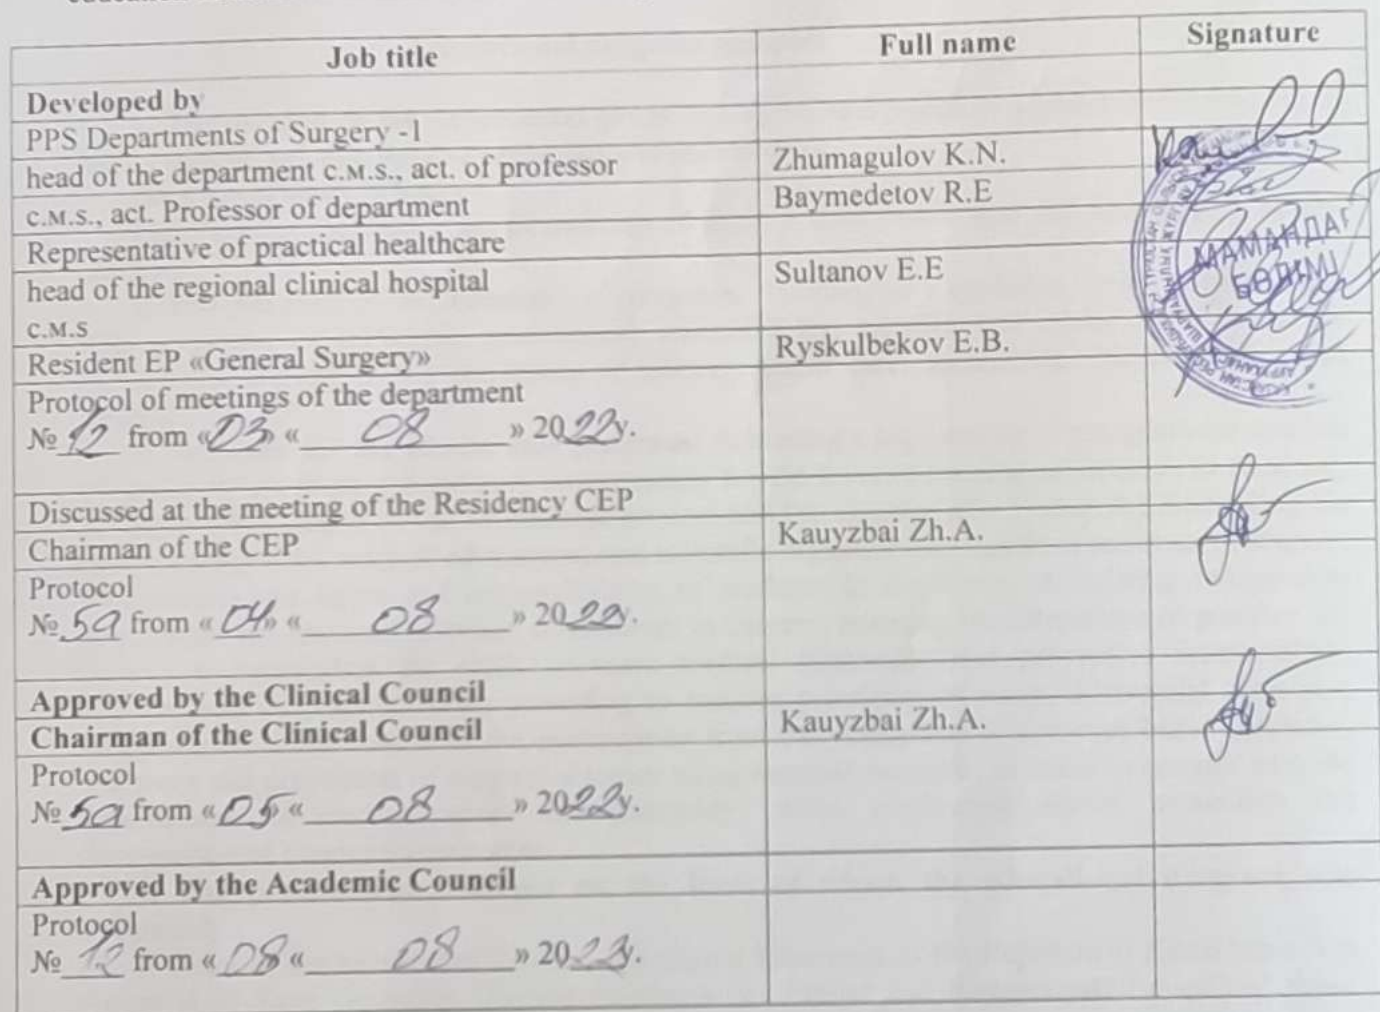 Job title Full name Signature
Developed by
PPS Departments of Surgery -1
head of the department c.м.s., act. of professor Zhumagulov K.N.
c.м.s., act. Professor of department Baymedetov R.E
Representative of practical healthcare
head of the regional clinical hospital Sultanov E.E
c.м.s
Resident EP «General Surgery» Ryskulbekov E.B.
МАМАНДАР
БӨЛІМІ
Protocol of meetings of the department
№ 12 from «03» « 08 » 2022y.
Discussed at the meeting of the Residency CEP
Chairman of the CEP Kauyzbai Zh.A.
Protocol
№ 5a from « 04» « 08 » 2022y.
Approved by the Clinical Council
Chairman of the Clinical Council Kauyzbai Zh.A.
Protocol
№ 5a from « 05» « 08 » 2022y.
Approved by the Academic Council
Protocol
№ 12 from « 08 « 08 » 2022y.